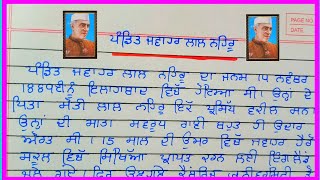 PAGE NO.
ਪੰਡਿਤ ਜਵਾਹਰ ਲਾਲ ਨਹਿਰੂ
ਪੰਡਿਤ ਜਵਾਹਰ ਲਾਲ ਨਹਿਰੂ ਦਾ ਜਨਮ 14 ਨਵੰਬਰ
1889 ਈ ਨੂੰ ਇਲਾਹਾਬਾਦ ਵਿਖੇ ਹੋਇਆ ਸੀ। ਉਨ੍ਹਾਂ ਦੇ
ਪਿਤਾ ਮੋਤੀ ਲਾਲ ਨਹਿਰੂ ਇਕ ਪ੍ਰਸਿੱਧ ਵਕੀਲ ਸਨ
ਉਨ੍ਹਾਂ ਦੀ ਮਾਤਾ ਸਵਰੂਪ ਰਾਣੀ ਬਹੁਤ ਹੀ ਉਦਾਰ
ਔਰਤ ਸੀ। 15 ਸਾਲ ਦੀ ਉਮਰ ਵਿਚ ਜਵਾਹਰ ਹੈਰੋ
ਸਕੂਲ ਵਿਚ ਸਿੱਖਿਆ ਪ੍ਰਾਪਤ ਕਰਨ ਲਈ ਇੰਗਲੈਂਡ